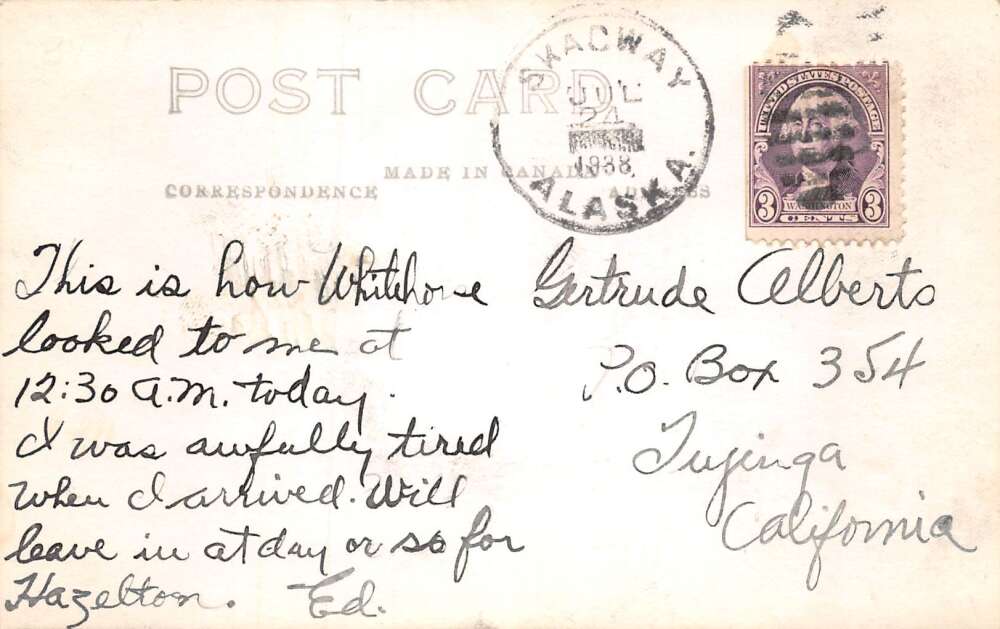 POST CARD
MADE IN CANADA
CORRESPONDENCE
ADDRESS
SKAGWAY
JUL
24
1938
ALASKA.
UNITED STATES POSTAGE
3 WASHINGTON 3
CENTS
This is how Whitehorse
looked to me at
12:30 A.M. today.
I was awfully tired
when I arrived. Will
leave in at day or so for
Hazelton. Ed.
Gertrude Alberts
P.O. Box 354
Tujinga
California